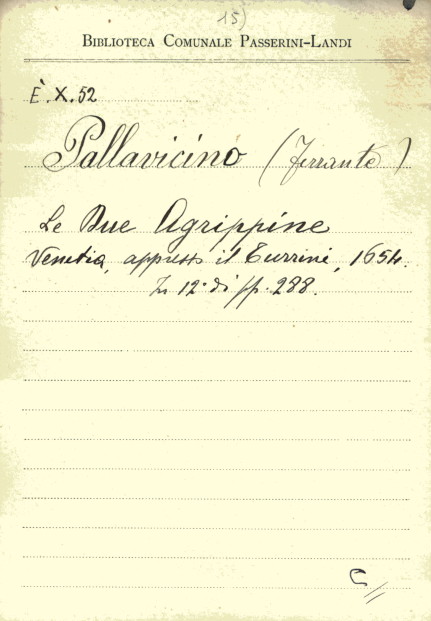 15)
BIBLIOTECA COMUNALE PASSERINI-LANDI
È.X.52
Pallavicino (Ferrante)
Le Due Agrippine
Venetia, appresso il Turrini, 1654.
In 12° di pp. 288.
C